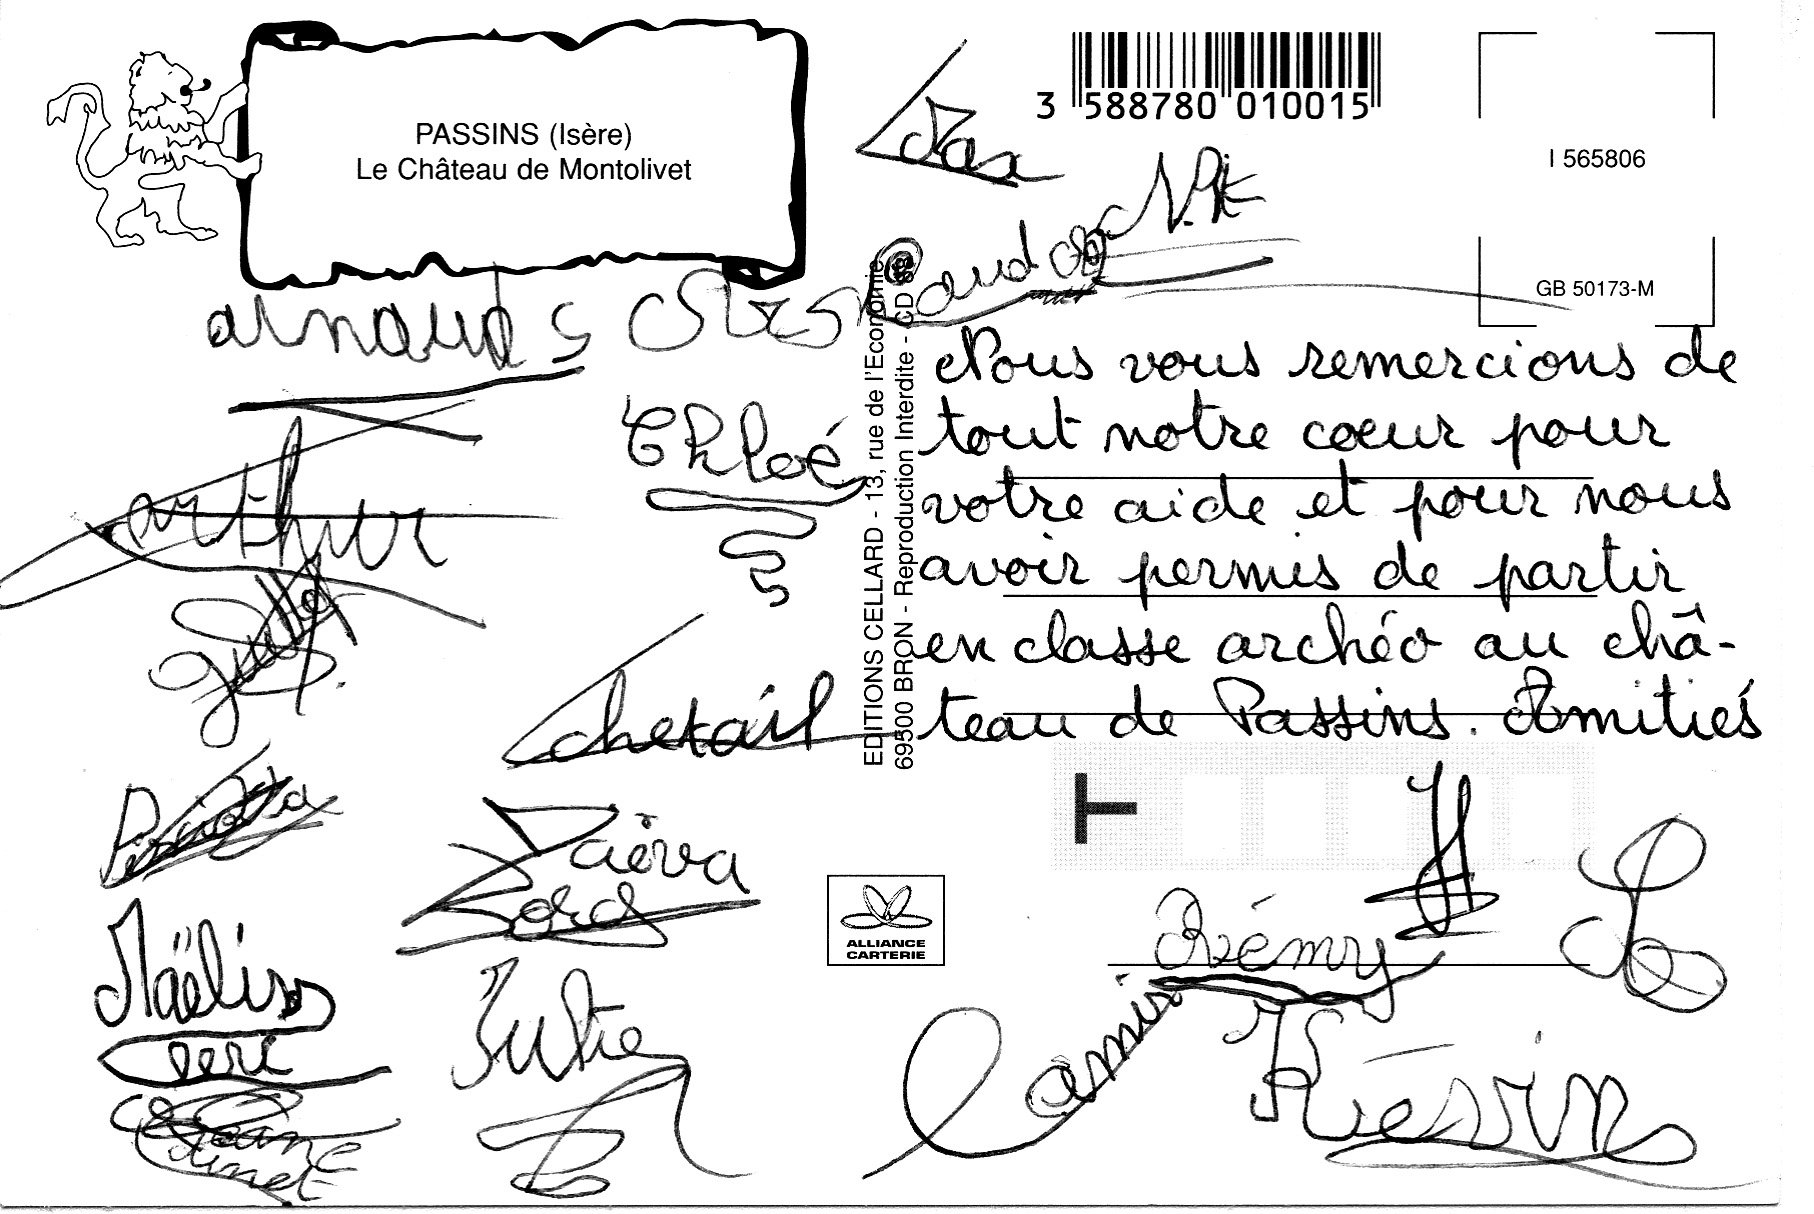 PASSINS (Isère)
Le Château de Montolivet
3 588780 010015
I 565806
GB 50173-M
EDITIONS CELLARD - 13, rue de l'Economie
69500 BRON - Reproduction Interdite - CD
Nous vous remercions de
tout notre cœur pour
votre aide et pour nous
avoir permis de partir
en classe archéo au châ-
teau de Passins. Amitiés
Max
arnaud S
Chloé
arthur
chetail
Maëva
Bord
Maëliss
Julie
Rémy
Camir
Kévin
T
ALLIANCE
CARTERIE